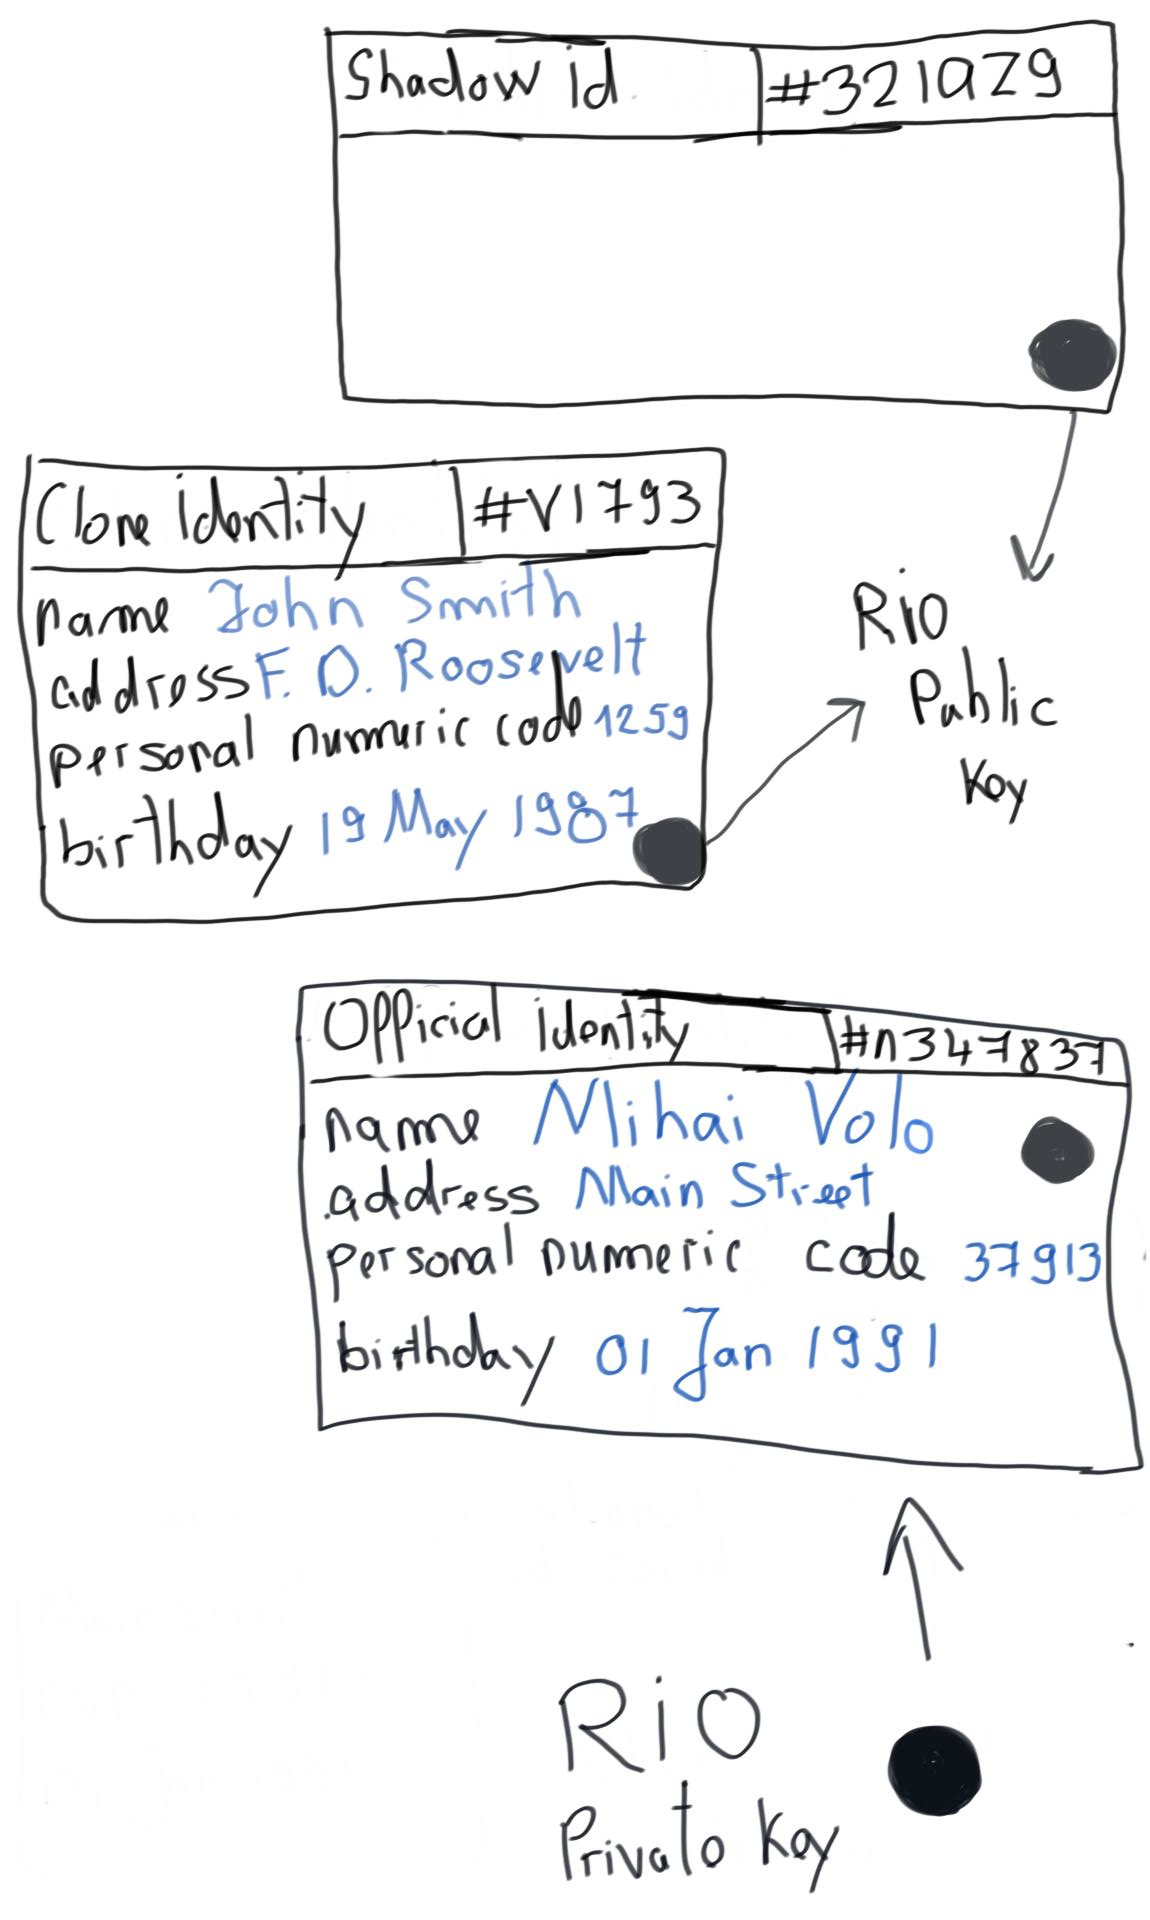 Shadow id #321aZ9
Clone identity #V1793
name John Smith
address F. D. Roosevelt
personal numeric code 1259
birthday 19 May 1987
Rio
Public
Key
Official identity #n347837
name Mihai Volo
address Main Street
personal numeric code 37913
birthday 01 Jan 1991
RiO
Private Key